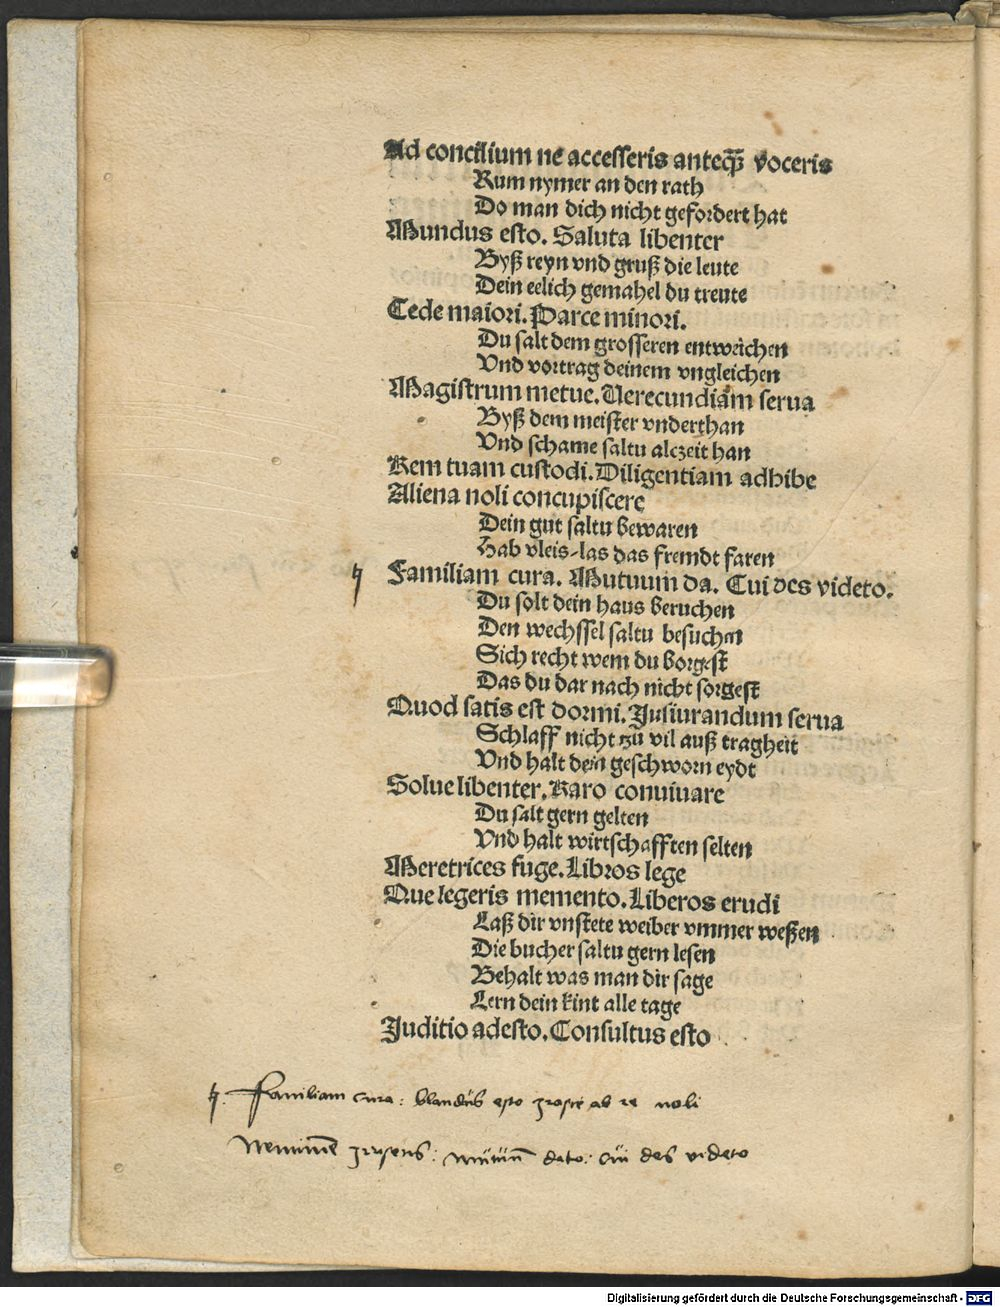 Ad concilium ne accesseris anteq̃ȝ voceris
Kum nymer an den rath
Do man dich nicht gefordert hat
Mundus esto. Saluta libenter
Byß reyn vnd gruß die leute
Dein eelich gemahel du treute
Cede maiori. Parce minori.
Du salt dem grosseren entweichen
Vnd vortrag deinem vngleichen
Magistrum metue. Uerecundiam serua
Byß dem meister vnderthan
Vnd schame saltu alczeit han
Rem tuam custodi. Diligentiam adhibe
Aliena noli concupiscere
Dein gut saltu bewaren
Hab vleis-las das fremdt faren
Familiam cura. Mutuum da. Cui des videto.
Du solt dein haus beruchen
Den wechssel saltu besuchn
Sich recht wem du borgest
Das du dar nach nicht sorgest
Quod satis est dormi. Jusiurandum serua
Schlaff nicht zu vil auß tragheit
Vnd halt dein geschworn eydt
Solue libenter. Raro conuiuare
Du salt gern gelten
Vnd halt wirtschafften selten
Meretrices fuge. Libros lege
Que legeris memento. Liberos erudi
Laß dir vnstete weiber vmmer weßen
Die bucher saltu gern lesen
Behalt was man dir sage
Lern dein kint alle tage
Juditio adesto. Consultus esto
Familiam cura: blandus esto irasci ab re noli
Neminē irriseris: mutuū dato: cui des videto
Digitalisierung gefördert durch die Deutsche Forschungsgemeinschaft - DFG